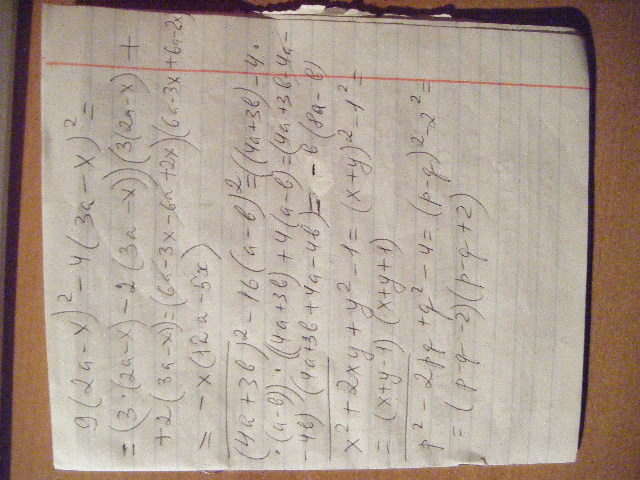 9(2a-x)² - 4(3a-x)² =
= (3·(2a-x) - 2(3a-x))(3(2a-x) +
+ 2(3a-x)) = (6a-3x-6a+2x)(6a-3x+6a-2x)
= -x(12a-5x)
(4a+3b)² - 16(a-b)² = ((4a+3b) - 4·
·(a-b))·((4a+3b)+4(a-b) = (4a+3b-4a-
-4b)(4a+3b+4a-4b) = -b(8a-b)
x²+2xy+y²-1 = (x+y)²-1² =
= (x+y-1)(x+y+1)
p²-2pq+q²-4 = (p-q)²-2² =
= (p-q-2)(p-q+2)